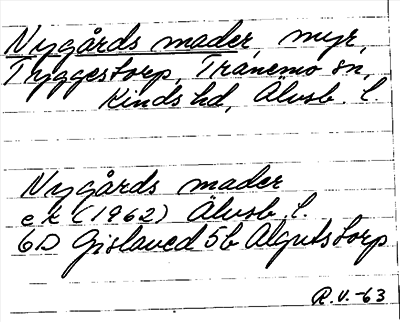 Nygårds mader, myr,
Tryggestorp, Tranemo sn,
Kinds hd, Älvsb. l.
Nygårds mader
ek (1962) Älvsb. l.
6D Gislaved 5b Algutstorp
R.V.-63